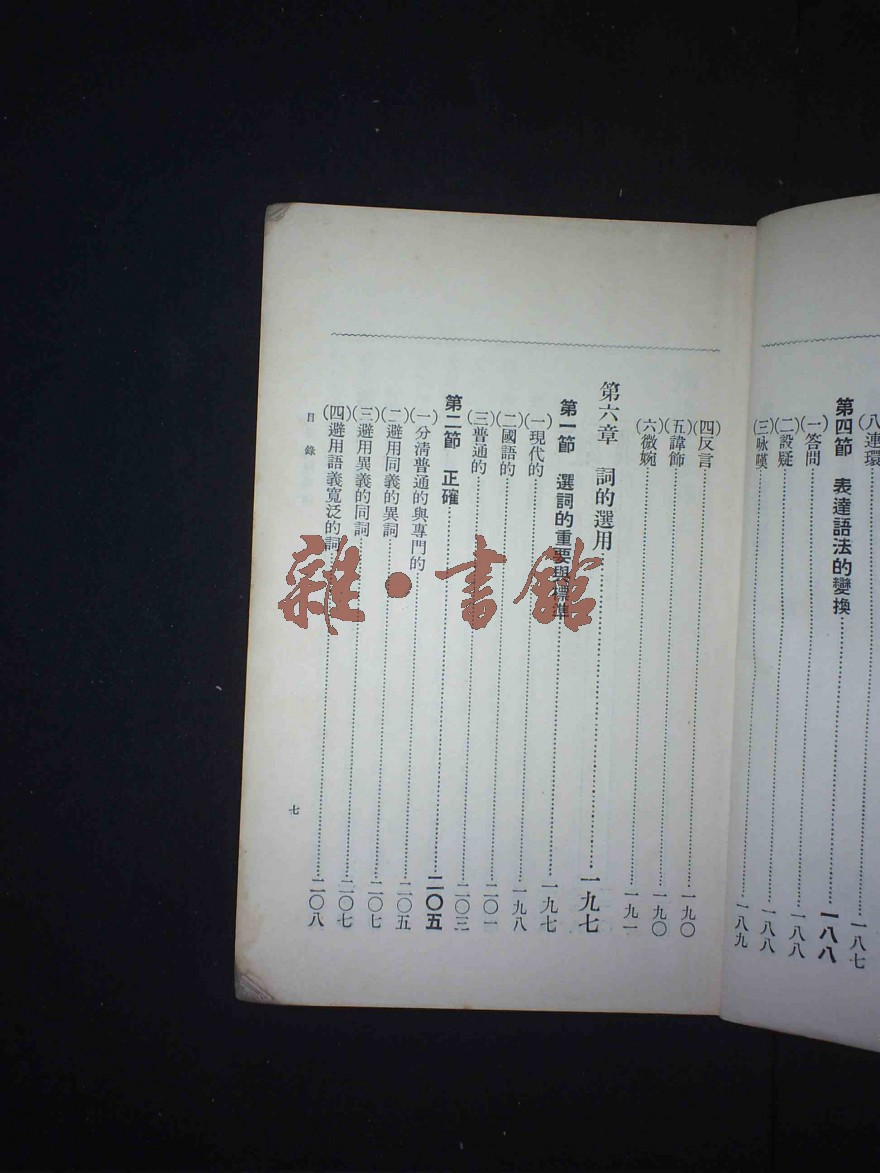 (八)連環……一八七
第四節 表達語法的變換……一八八
(一)答問……一八八
(二)設疑……一八八
(三)咏嘆……一八九
(四)反言……一九〇
(五)諱飾……一九〇
(六)微婉……一九一
第六章 詞的選用……一九七
第一節 選詞的重要與標準……一九七
(一)現代的……一九八
(二)國語的……二〇一
(三)普通的……二〇三
第二節 正確……二〇五
(一)分清普通的與專門的……二〇五
(二)避用同義的異詞……二〇七
(三)避用異義的同詞……二〇七
(四)避用語義寬泛的詞……二〇八
目錄
七
雜·書館